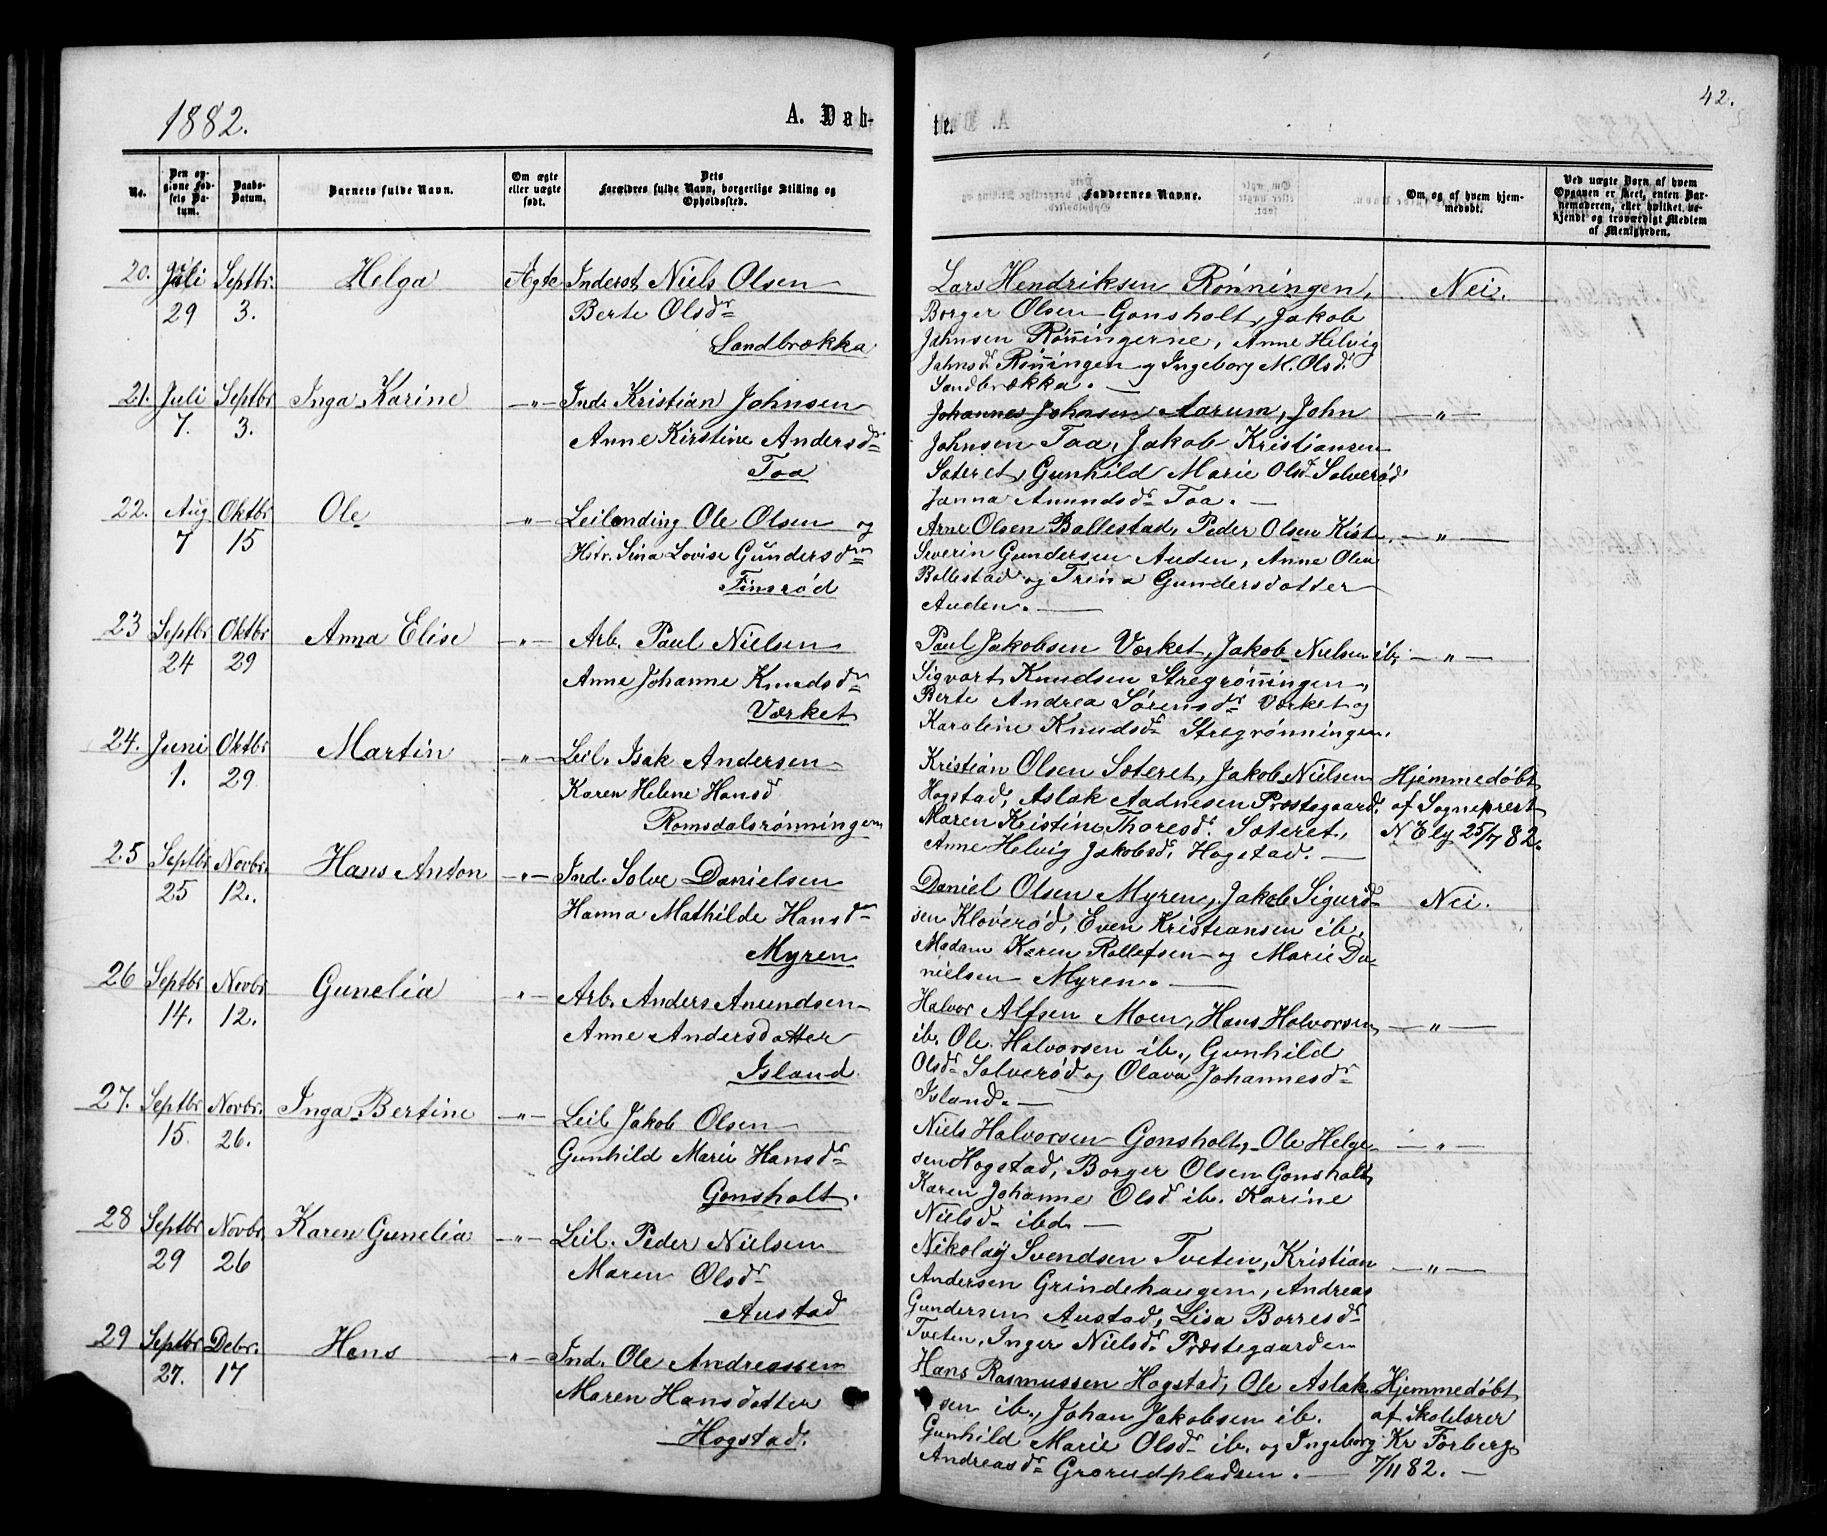 1882.
A. Daab-
te.
42.
No.
Den op-
givne Fød-
sels Da-
tum.
Daabs-
Datum.
Barnets fulde Navn.
Om ægte
eller uægte
født.
Dets
Forældres fulde Navn, borgerlige Stilling og
Opholdssted.
Faddernes Navne.
Om og af hvem hjem-
medøbt.
Ved uægte Børn af hvem
Opgaven er skeet, enten Bar-
nemoderen, eller hvilket be-
kjendt og troværdigt Medlem
af Menigheden.
20. Juli Septbr. Helga Ægte Inderst Niels Olsen
29 3. Berte Olsdr
Sandbrækka
Lars Hendriksen Rønningen, Nei.
Borger Olsen Gonsholt, Jakob
Jahnsen Rønningerne, Anne Helvig
Jahnsd. Rønningen og Ingeborg M. Olsd.
Sandbrækka. —
21. Juli Septbr Inga Karine —"— Ind. Kristian Johnsen
7. 3. Anne Kirstine Andersdr
Taa
Johannes Johnsen Aarum, John —"—
Johnsen Taa, Jakob Kristiansen
Sæteret, Gunhild Marie Olsdr Solverød
Janna Amundsdr Taa. —
22. Aug Oktbr Ole —"— Leilending Ole Olsen og
7 15 Hstr. Sina Lovise Gundersdr
Finsrød
Arne Olsen Bollestad, Peder Olsen Kiste, —"—
Severin Gundersen Auden, Anne Olea
Bollestad og Trina Gundersdatter
Auden. —
23 Septbr Oktbr Anna Elise —"— Arb. Paul Nielsen
24 29 Anne Johanne Knudsdr
Værket
Paul Jakobsen Værket, Jakob Nielsen ib, —"—
Sigvart Knudsen Stregrønningen,
Berte Andrea Sørensdr Værket og
Karoline Knudsdr Stregrønningen.
24. Juni Oktbr Martin —"— Leil. Isak Andersen
1. 29 Karen Helene Hansd
Romsdalsrønningen
Kristian Olsen Sæteret, Jakob Nielsen Hjemmedøbt
Hogstad, Aslak Aadnesen Præstegaard. af Sogneprest
Maren Kristine Thoresd. Sæteret, N Ely 25/7 82.
Anne Helvig Jakobsd. Hogstad. —
25 Septbr Novbr. Hans Anton —"— Ind. Solve Danielsen
25 12. Hanna Mathilde Hansdr
Myren
Daniel Olsen Myren, Jakob Sigurd- Nei.
sen Kloverød, Even Kristiansen ib,
Madam Karen Rollefsen og Marie Da-
nielsen Myren. —
26 Septbr Novbr Gunelia —"— Arb. Anders Amundsen
14. 12. Anne Andersdatter
Island
Halvor Alfsen Moen, Hans Halvorsen —"—
ib. Ole Halvorsen ib., Gunhild
Olsdr Solverød og Olava Johannesdr
Island. —
27. Septbr Novbr. Inga Bertine —"— Leil Jakob Olsen
15. 26. Gunhild Marie Hansdr
Gonsholt.
Niels Halvorsen Gonsholt, Ole Helge- —"—
sen Hogstad, Borger Olsen Gonsholt
Karen Johanne Olsd ib. Karine
Nielsdr ibd. —
28 Septbr Novbr. Karen Gunelia —"— Leil. Peder Nielsen
29 26 Maren Olsdr
Austad
Nikolaÿ Svendsen Tveten, Kristian —"—
Andersen Grindehaugen, Andreas
Gundersen Austad, Lisa Borresdr
Tveten, Inger Nielsdr Præstegaarden
29 Septbr Debr. Hans —"— Ind. Ole Andreassen
27. 17 Maren Hansdatter
Hogstad.
Hans Rasmussen Hogstad, Ole Aslak- Hjemmedøbt
sen ib., Johan Jakobsen ib. af Skolelærer
Gunhild Marie Olsdr ib. og Ingeborg Kr Forberg
Andreasdr Grorudpladsen. — 7/11 82. —